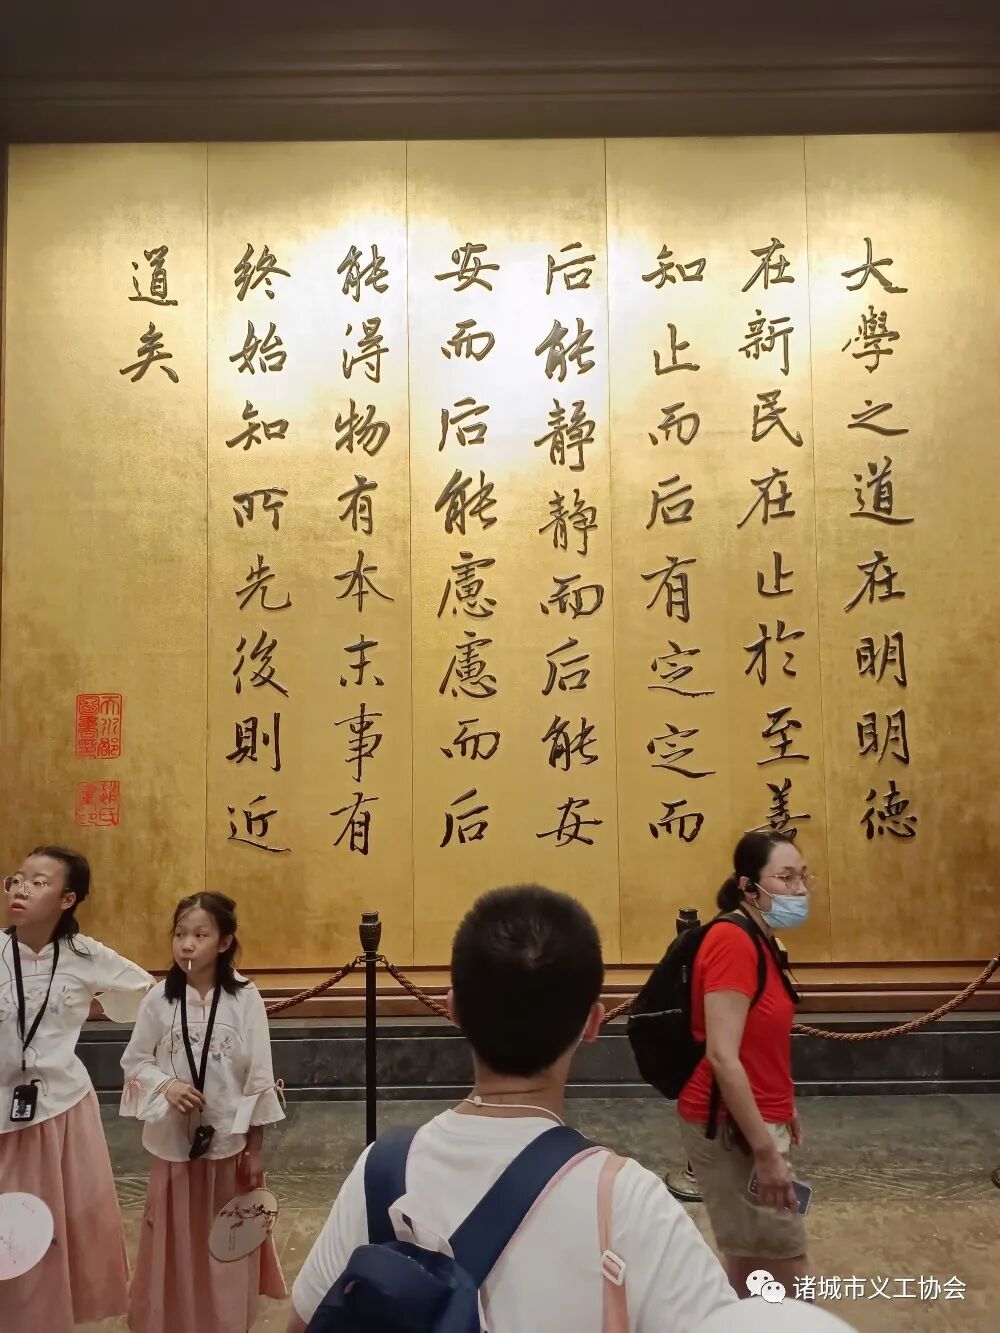 大學之道在明明德
在新民在止於至善
知止而后有定定而
后能静静而后能安
安而后能慮慮而后
能得物有本末事有
终始知所先後則近
道矣
诸城市义工协会